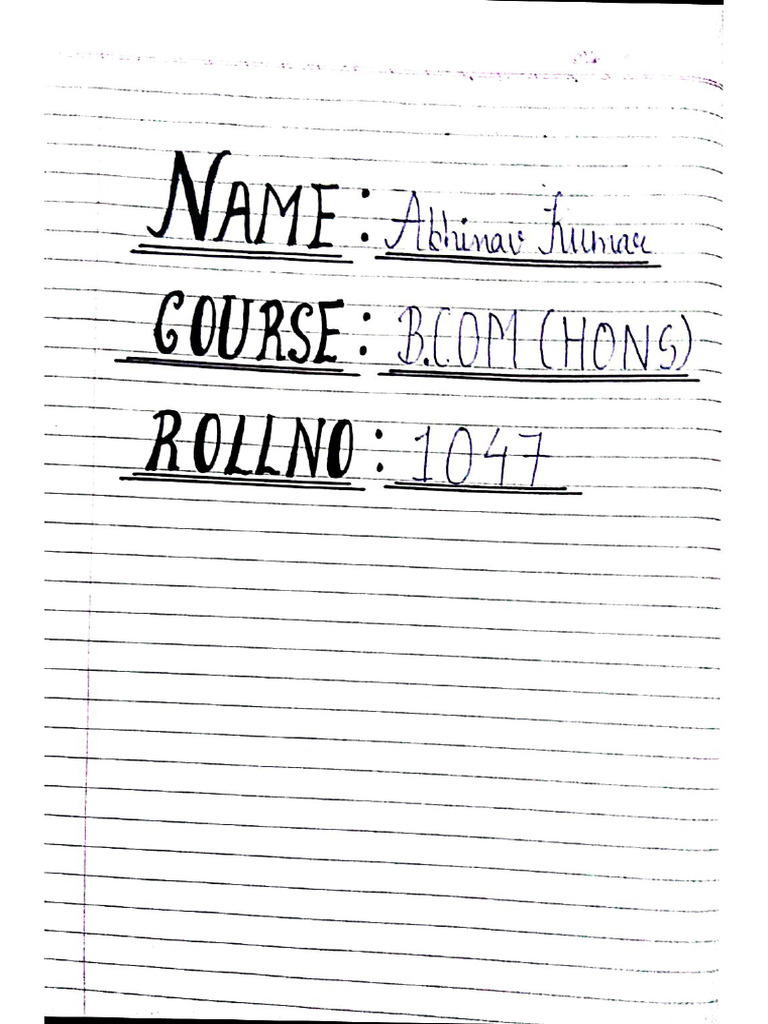 NAME: Abhinav Kumar
COURSE: B.COM (HONS)
ROLLNO: 1047